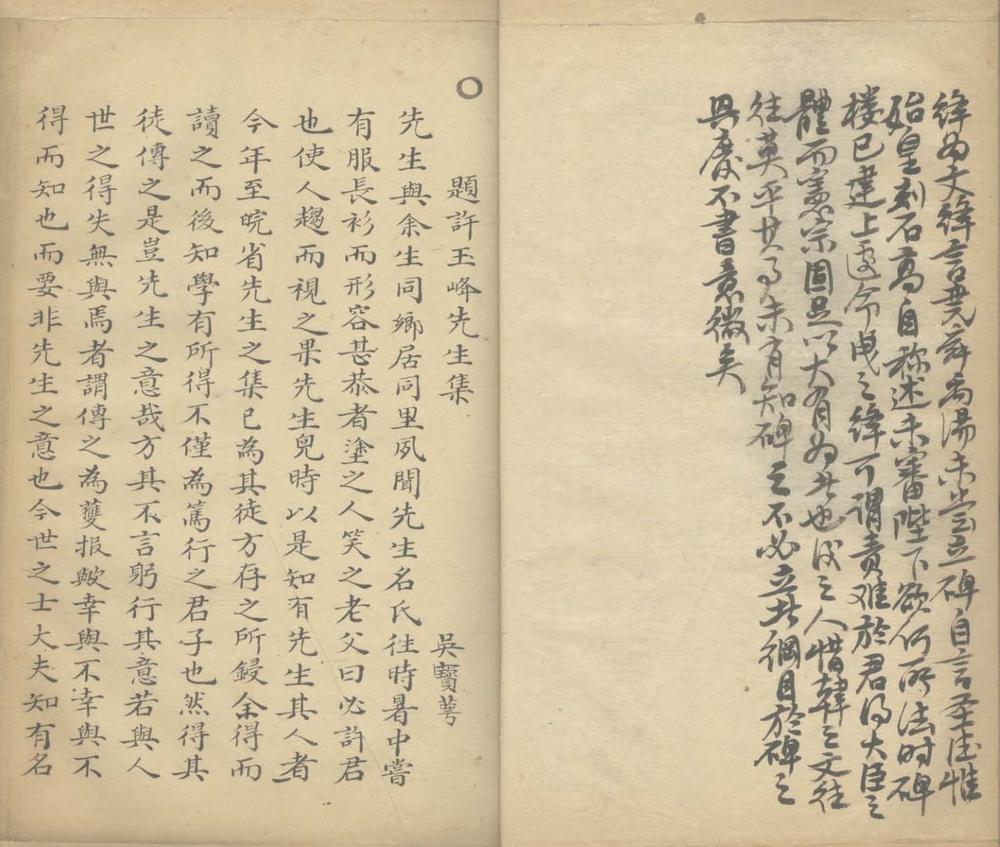 絳為文絳言堯舜禹湯未嘗立碑自言聖德惟
始皇刻石高自称述未審陛下欲何所法时碑
楼已建上遽令曳之絳可谓责难於君得大臣之
體而憲宗固足以大有为者也后之人惜韩之文往
往莫平其事未有知碑之不必立者綱目於碑之
興废不書意微矣
○
題許玉峰先生集
吳寶萼
先生與余生同鄉居同里夙聞先生名氏往時暑中嘗
有服長衫而形容甚恭者塗之人笑之老父曰必許君
也使人趨而視之果先生兒時以是知有先生其人者
今年至皖省先生之集已為其徒方存之所鋟余得而
讀之而後知學有所得不僅為篤行之君子也然得其
徒傳之是豈先生之意哉方其不言躬行其意若與人
世之得失無與焉者謂傳之為雙报歟幸與不幸與不
得而知也而要非先生之意也今世之士大夫知有名